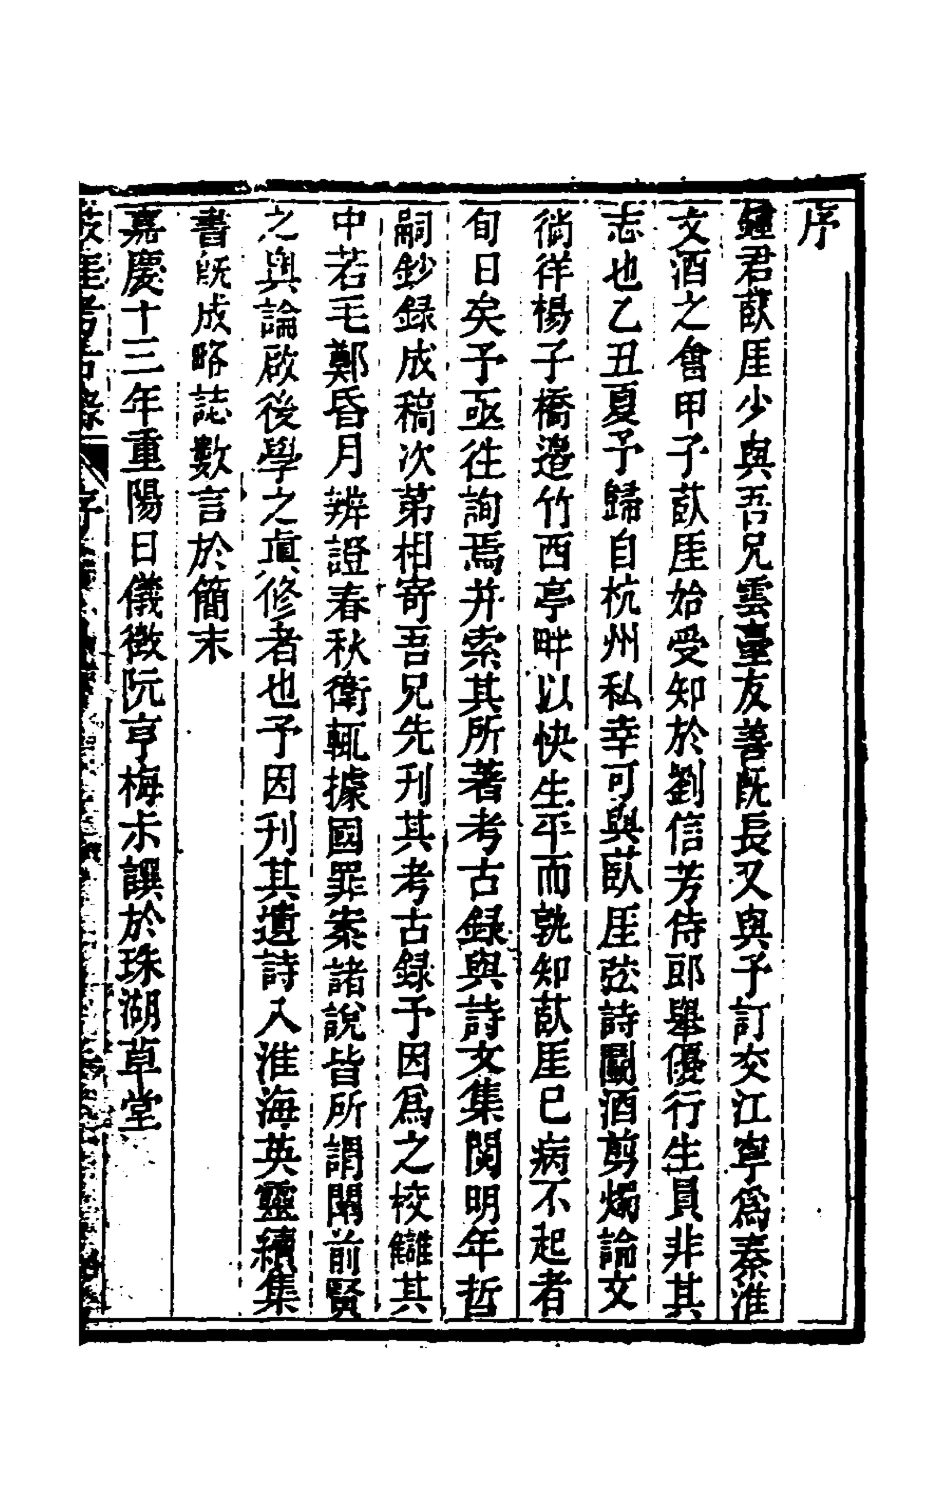 序
鍾君菣厓少與吾兄雲臺友善既長又與予訂交江寧爲秦淮
文酒之會甲子菣厓始受知於劉信芳侍郎舉優行生員非其
志也乙丑夏予歸自杭州私幸可與菣厓弦詩鬭酒剪燭論文
徜徉楊子橋邉竹西亭畔以快生平而孰知菣厓已病不起者
旬日矣予亟往詢焉并索其所著考古録與詩文集閱明年哲
嗣鈔録成稿次第相寄吾兄先刋其考古録予因爲之校讎其
中若毛鄭昏月辨證春秋衛輒據國罪案諸說皆所謂闡前賢
之輿論啟後學之眞修者也予因刋其遺詩入淮海英靈續集
書既成略誌數言於簡末
嘉慶十三年重陽日儀徵阮亨梅尗譔於珠湖草堂
菣厓考古錄 序